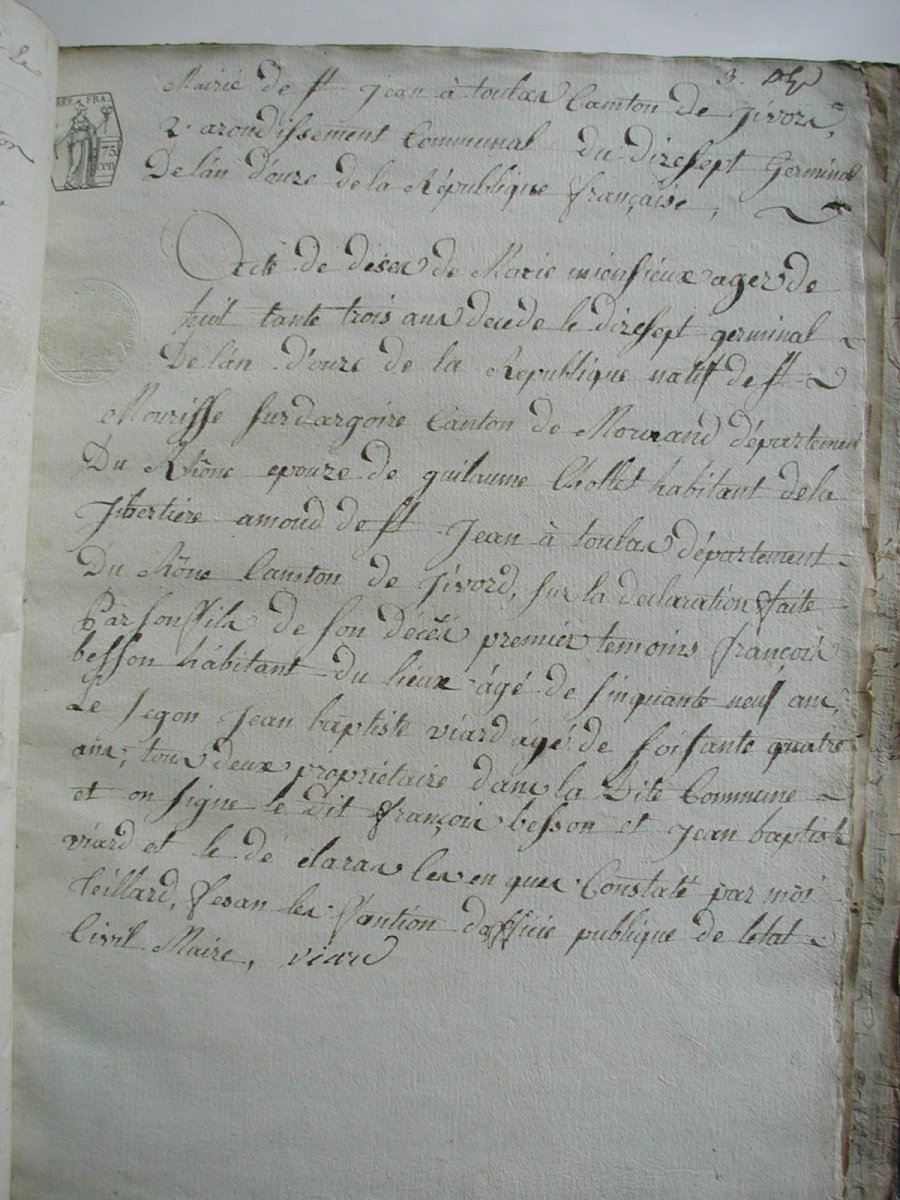 3.
REP. FRA.
75 cen
Mairié de st jean à toulas Canton de jivors,
2e arondissement Communal du dixsept Germinal
De lán d'onze de la République française,
Acte de déses de Marie miensieux agér de
huit tante trois ans decede le dixsept germinal
De lán d'onze de la République natif de st
Mourisse surdargoire Canton de Mornand département
Du Rhône epouze de guilaume Chollet habitant de la
amond de st jean à toulas département
Du Rône Canton de jivord, sur la declaration faite
Par son fils de son décès premier temoins françois
besson hábitant du lieux âgé de sinquante neuf ans,
Le segon jean baptiste viard âgé de soisante quatre
ans, tous deux propriétaire dans la dite Commune
et on signe le dit françois besson et jean baptiste
viard et le de claras les en ques Constaté par moi
teillard, fesan les fantion dofficié publique de letat
Civil Maire, viard